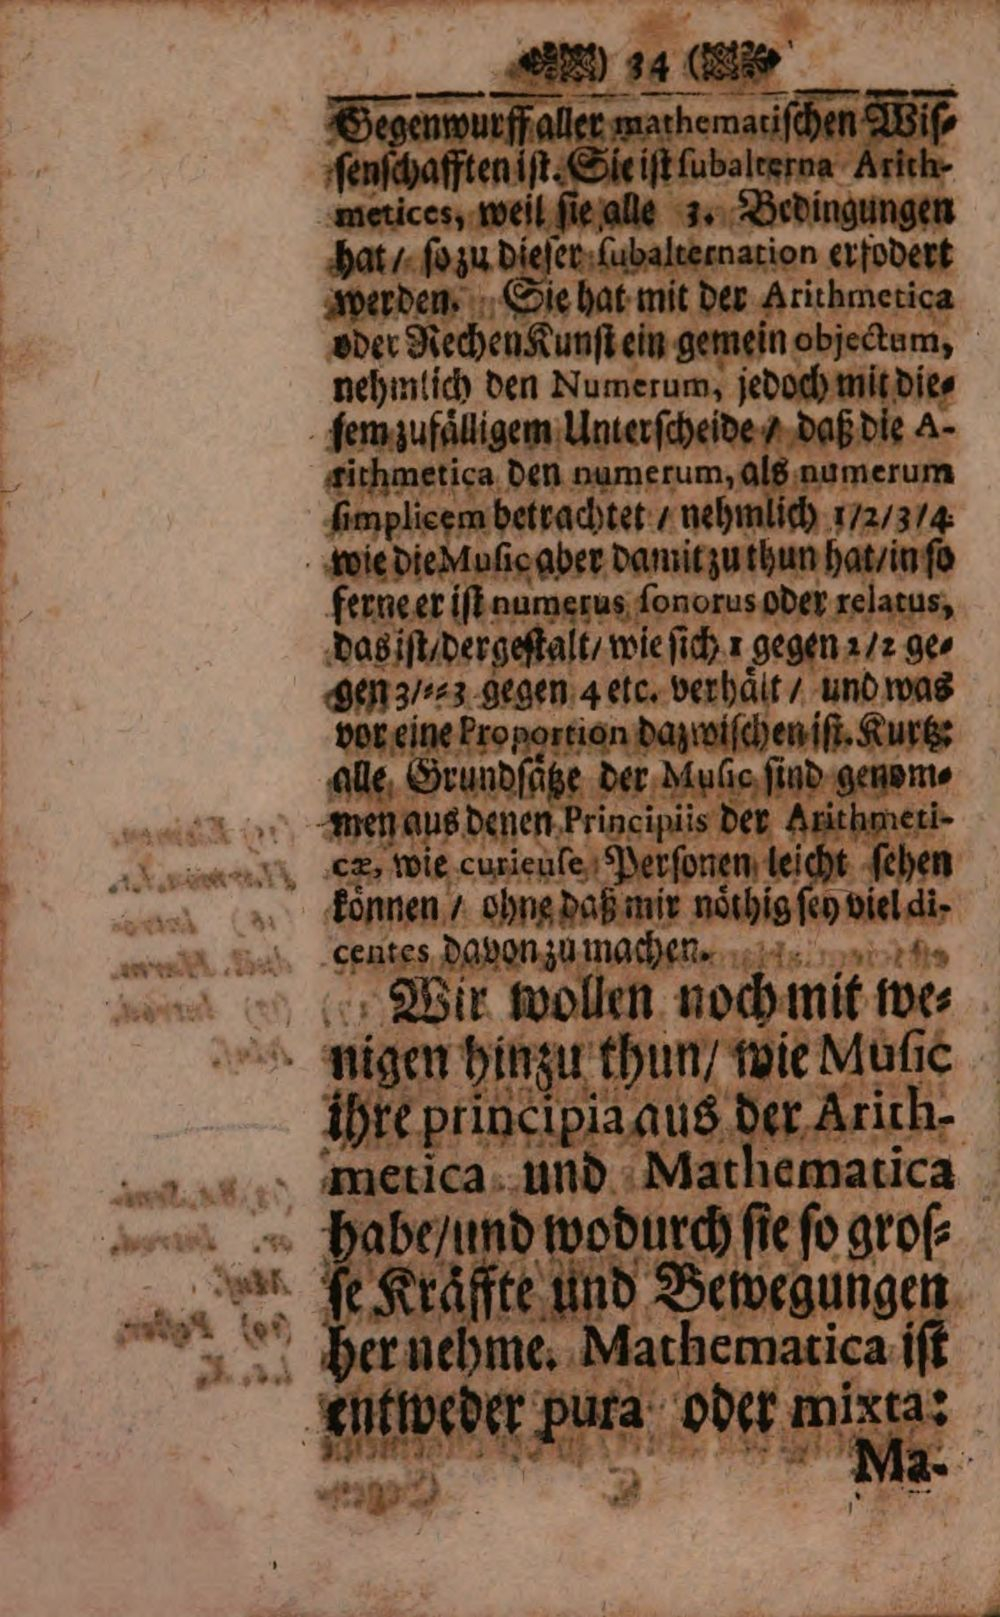 ) 34 (
Gegenwurff aller mathematiſchen Wiſ-
ſenſchafften iſt. Sie iſt ſubalterna Arith-
metices, weil ſie alle 3. Bedingungen
hat / ſo zu dieſer ſubalternation erfodert
werden. Sie hat mit der Arithmetica
oder RechenKunſt ein gemein objectum,
nehmlich den Numerum, jedoch mit die-
ſem zufaͤlligem Unterſcheide / daß die A-
rithmetica den numerum, als numerum
ſimplicem betrachtet / nehmlich 1/2/3/4.
wie die Muſic aber damit zu thun hat/ in ſo
ferne er iſt numerus ſonorus oder relatus,
das iſt/ dergeſtalt/ wie ſich 1 gegen 2/2 ge-
gen 3/ 3 gegen 4 etc. verhaͤlt / und was
vor eine Proportion dazwiſchen iſt. Kurtz:
alle Grundſaͤtze der Muſic ſind genom-
men aus denen Principiis der Arithmeti-
cæ, wie curieuſe Perſonen leicht ſehen
koͤnnen / ohne daß mir noͤthig ſey viel di-
centes davon zu machen.
Wir wollen noch mit we-
nigen hinzu thun/ wie Muſic
ihre principia aus der Arith-
metica und Mathematica
habe/ und wodurch ſie ſo groſ-
ſe Kraͤffte und Bewegungen
her nehme. Mathematica iſt
entweder pura oder mixta:
Ma-